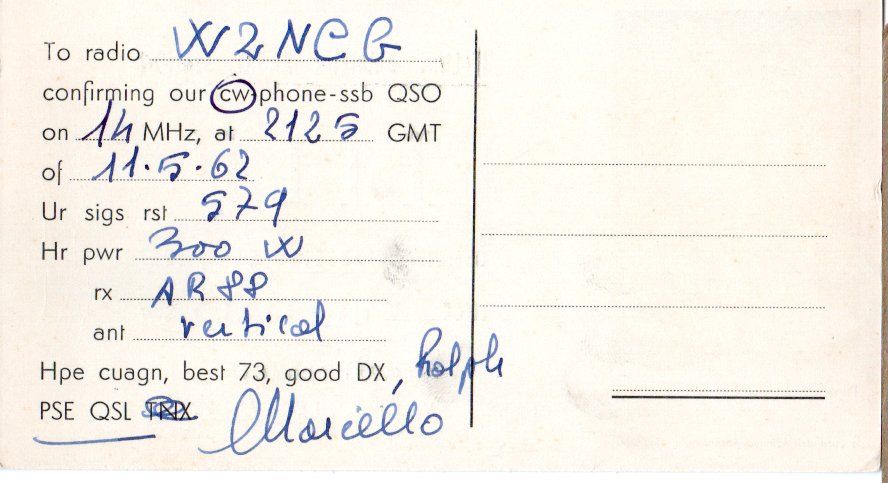 To radio W2NCG
confirming our cw-phone-ssb QSO
on 14 MHz, at 2125 GMT
of 11.5.62
Ur sigs rst 579
Hr pwr 300 W
rx AR88
ant vertical
Hpe cuagn, best 73, good DX, Ralph
PSE QSL TNX
Marcello